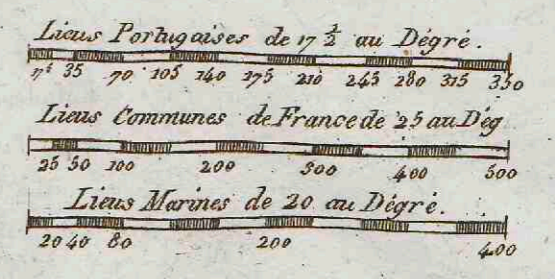 Lieus Portugaises de 17 ½ au Dégré.
17½ 35 70 105 140 175 210 245 280 315 350
Lieus Communes de France de 25 au Dég
25 50 100 200 300 400 500
Lieus Marines de 20 au Dégré.
20 40 80 200 400